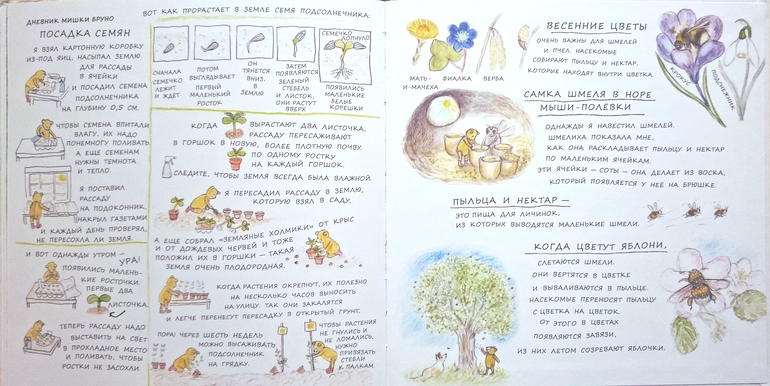 ДНЕВНИК МИШКИ БРУНО
ПОСАДКА СЕМЯН
Я ВЗЯЛ КАРТОННУЮ КОРОБКУ
ИЗ-ПОД ЯИЦ, НАСЫПАЛ ЗЕМЛЮ
ДЛЯ РАССАДЫ
В ЯЧЕЙКИ
И ПОСАДИЛ СЕМЕНА
ПОДСОЛНЕЧНИКА
НА ГЛУБИНУ 0,5 СМ.
ЧТОБЫ СЕМЕНА ВПИТАЛИ
ВЛАГУ, ИХ НАДО
ПОНЕМНОГУ ПОЛИВАТЬ.
А ЕЩЕ СЕМЕНАМ
НУЖНЫ ТЕМНОТА
И ТЕПЛО.
Я ПОСТАВИЛ
РАССАДУ
НА ПОДОКОННИК,
НАКРЫЛ ГАЗЕТАМИ
И КАЖДЫЙ ДЕНЬ ПРОВЕРЯЛ,
НЕ ПЕРЕСОХЛА ЛИ ЗЕМЛЯ.
И ВОТ ОДНАЖДЫ УТРОМ –
УРА!
ПОЯВИЛИСЬ МАЛЕНЬ-
КИЕ РОСТОЧКИ.
ПЕРВЫЕ ДВА
ЛИСТОЧКА.
ТЕПЕРЬ РАССАДУ НАДО
ВЫСТАВИТЬ НА СВЕТ
В ПРОХЛАДНОЕ МЕСТО
И ПОЛИВАТЬ, ЧТОБЫ
РОСТКИ НЕ ЗАСОХЛИ.
ВОТ КАК ПРОРАСТАЕТ В ЗЕМЛЕ СЕМЯ ПОДСОЛНЕЧНИКА:
СЕМЕЧКО
ЛОПНУЛО
СНАЧАЛА
СЕМЕЧКО
ЛЕЖИТ
И ЖДЁТ
ПОТОМ
ВЫГЛЯДЫВАЕТ
ПЕРВЫЙ
МАЛЕНЬКИЙ
РОСТОК
ОН
ТЯНЕТСЯ
ВНИЗ,
В
ЗЕМЛЮ
ЗАТЕМ
ПОЯВЛЯЮТСЯ
ЗЕЛЕНЫЙ
СТЕБЕЛЬ
И ЛИСТОК,
ОНИ РАСТУТ
ВВЕРХ
ПОЯВИЛИСЬ
МАЛЕНЬКИЕ
БЕЛЫЕ
КОРЕШКИ
КОГДА ВЫРАСТАЮТ ДВА ЛИСТОЧКА,
РАССАДУ ПЕРЕСАЖИВАЮТ
В ГОРШОК В НОВУЮ, БОЛЕЕ ПЛОТНУЮ ПОЧВУ.
ПО ОДНОМУ РОСТКУ
НА КАЖДЫЙ ГОРШОК.
СЛЕДИТЕ, ЧТОБЫ ЗЕМЛЯ ВСЕГДА БЫЛА ВЛАЖНОЙ.
Я ПЕРЕСАДИЛ РАССАДУ В ЗЕМЛЮ,
КОТОРУЮ ВЗЯЛ В САДУ.
А ЕЩЕ СОБРАЛ «ЗЕМЛЯНЫЕ ХОЛМИКИ» ОТ КРЫС
И ОТ ДОЖДЕВЫХ ЧЕРВЕЙ И ТОЖЕ
ПОЛОЖИЛ ИХ В ГОРШКИ – ТАКАЯ
ЗЕМЛЯ ОЧЕНЬ ПЛОДОРОДНАЯ.
КОГДА РАСТЕНИЯ ОКРЕПНУТ, ИХ ПОЛЕЗНО
НА НЕСКОЛЬКО ЧАСОВ ВЫНОСИТЬ
НА УЛИЦУ. ТАК ОНИ ЗАКАЛЯТСЯ
И ЛЕГЧЕ ПЕРЕНЕСУТ ПЕРЕСАДКУ В ОТКРЫТЫЙ ГРУНТ.
ПОРА! ЧЕРЕЗ ШЕСТЬ НЕДЕЛЬ
МОЖНО ВЫСАЖИВАТЬ
ПОДСОЛНЕЧНИК
НА ГРЯДКУ.
ЧТОБЫ РАСТЕНИЯ
НЕ ГНУЛИСЬ И
НЕ ЛОМАЛИСЬ,
НУЖНО
ПРИВЯЗАТЬ
СТЕБЛИ
К ПАЛКАМ.
МАТЬ-
И-МАЧЕХА
ФИАЛКА
ВЕРБА
КРОКУС
ПОДСНЕЖНИК
ВЕСЕННИЕ ЦВЕТЫ
ОЧЕНЬ ВАЖНЫ ДЛЯ ШМЕЛЕЙ
И ПЧЕЛ. НАСЕКОМЫЕ
СОБИРАЮТ ПЫЛЬЦУ И НЕКТАР,
КОТОРЫЕ НАХОДЯТ ВНУТРИ ЦВЕТКА.
САМКА ШМЕЛЯ В НОРЕ
МЫШИ-ПОЛЕВКИ
ОДНАЖДЫ Я НАВЕСТИЛ ШМЕЛЕЙ.
ШМЕЛИХА ПОКАЗАЛА МНЕ,
КАК ОНА РАСКЛАДЫВАЕТ ПЫЛЬЦУ И НЕКТАР
ПО МАЛЕНЬКИМ ЯЧЕЙКАМ.
ЭТИ ЯЧЕЙКИ – СОТЫ – ОНА ДЕЛАЕТ ИЗ ВОСКА,
КОТОРЫЙ ПОЯВЛЯЕТСЯ У НЕЁ НА БРЮШКЕ.
ПЫЛЬЦА И НЕКТАР –
ЭТО ПИЩА ДЛЯ ЛИЧИНОК,
ИЗ КОТОРЫХ ВЫВОДЯТСЯ МАЛЕНЬКИЕ ШМЕЛИ.
КОГДА ЦВЕТУТ ЯБЛОНИ,
СЛЕТАЮТСЯ ШМЕЛИ.
ОНИ ВЕРТЯТСЯ В ЦВЕТКЕ
И ВЫВАЛИВАЮТСЯ В ПЫЛЬЦЕ.
НАСЕКОМЫЕ ПЕРЕНОСЯТ ПЫЛЬЦУ
С ЦВЕТКА НА ЦВЕТОК.
ОТ ЭТОГО В ЦВЕТАХ
ПОЯВЛЯЮТСЯ ЗАВЯЗИ,
ИЗ НИХ ЛЕТОМ СОЗРЕВАЮТ ЯБЛОЧКИ.